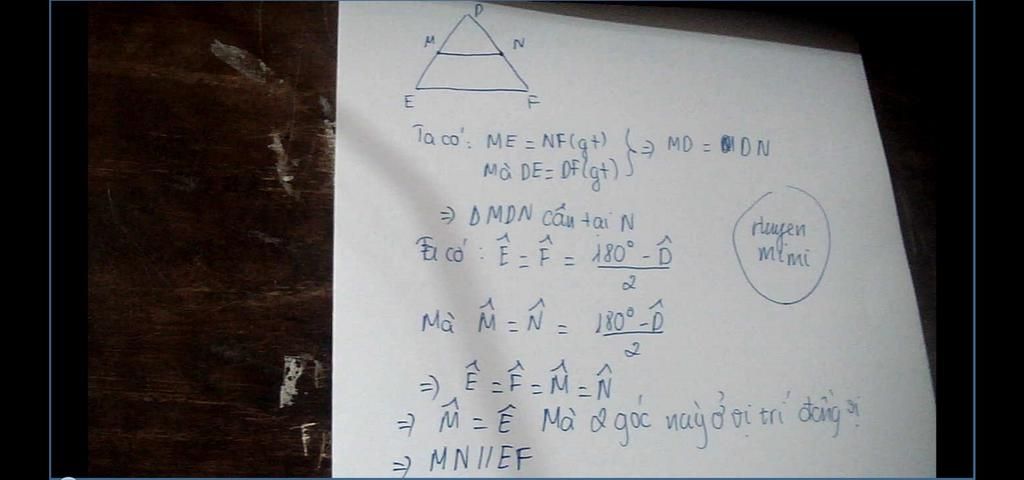 D
M N
E F
Ta có: ME = NF (gt) } => MD = DN
Mà DE = DF (gt)
=> ΔMDN cân tai N
Ta có: Ê = F̂ = 180° - D̂ / 2
Huyen
mimi
Mà M̂ = N̂ = 180° - D̂ / 2
=> Ê = F̂ = M̂ = N̂
=> M̂ = Ê Mà 2 góc này ở vị trí đồng vị
=> MN // EF